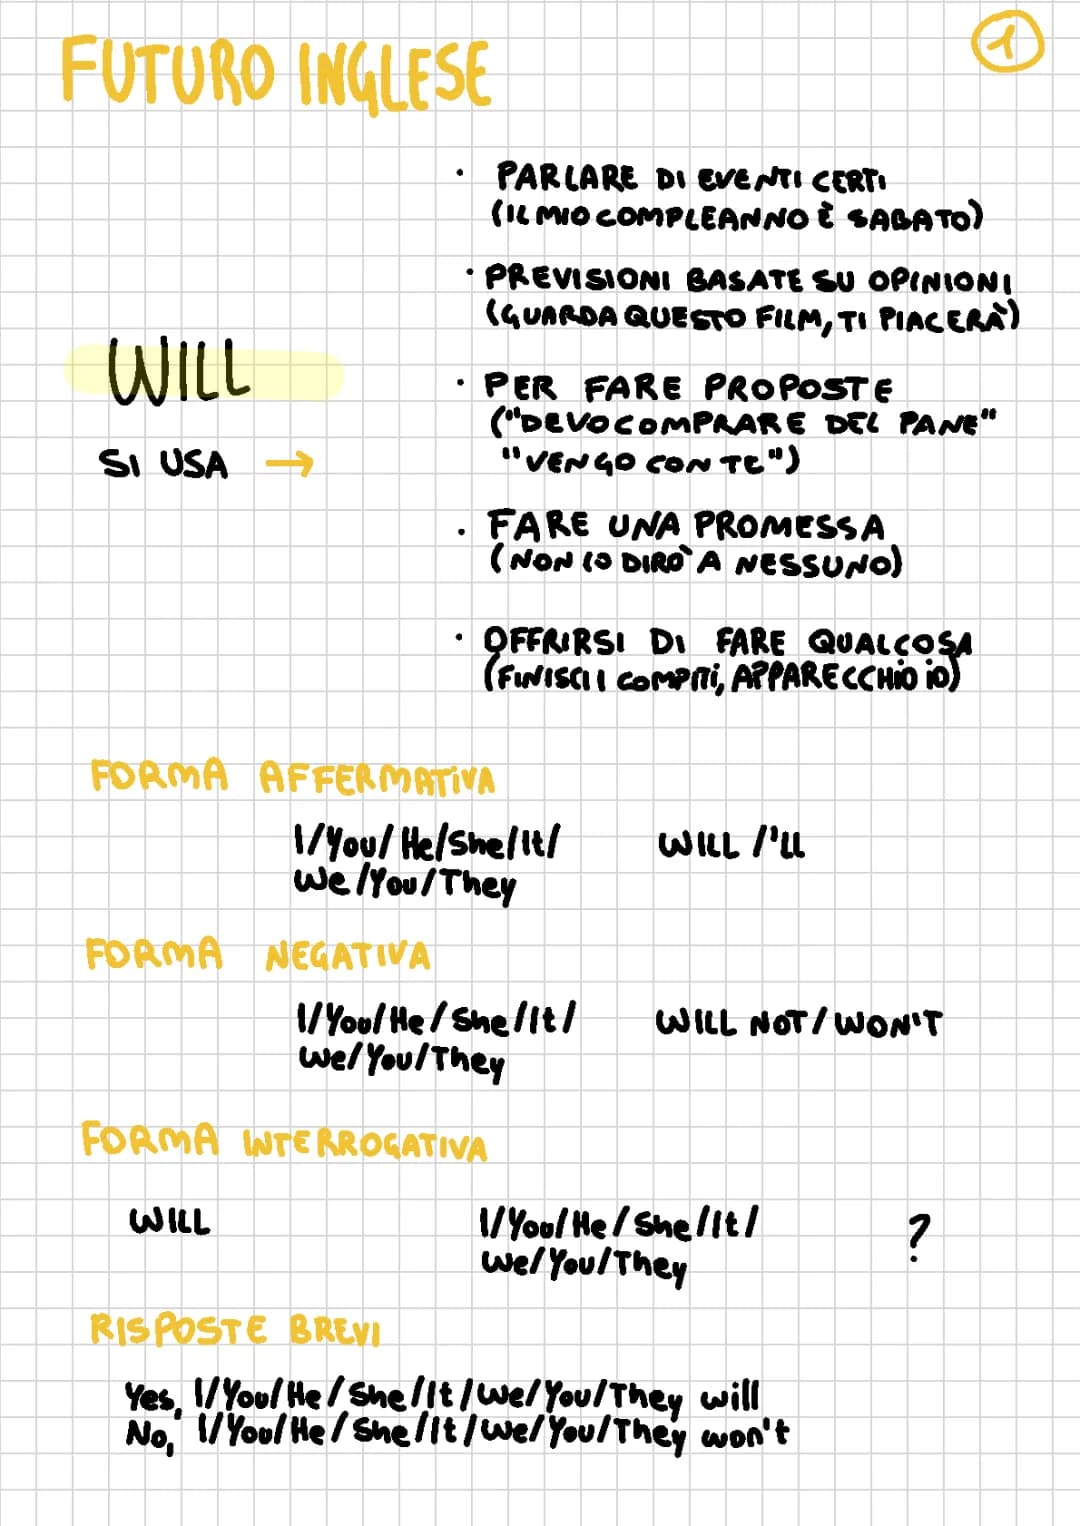 FUTURO INGLESE
1
• PARLARE DI EVENTI CERTI
(IL MIO COMPLEANNO È SABATO)
• PREVISIONI BASATE SU OPINIONI
(GUARDA QUESTO FILM, TI PIACERÀ)
WILL
• PER FARE PROPOSTE
("DEVO COMPRARE DEL PANE"
"VENGO CON TE")
SI USA →
• FARE UNA PROMESSA
(NON LO DIRÒ A NESSUNO)
• OFFRIRSI DI FARE QUALCOSA
(FINISCI I COMPITI, APPARECCHIO IO)
FORMA AFFERMATIVA
I/You/He/She/It/ WILL /'LL
We/You/They
FORMA NEGATIVA
I/You/He/She/It/ WILL NOT/WON'T
We/You/They
FORMA INTERROGATIVA
WILL I/You/He/She/It/ ?
We/You/They
RISPOSTE BREVI
Yes, I/You/He/She/It/We/You/They will
No, I/You/He/She/It/We/You/They won't